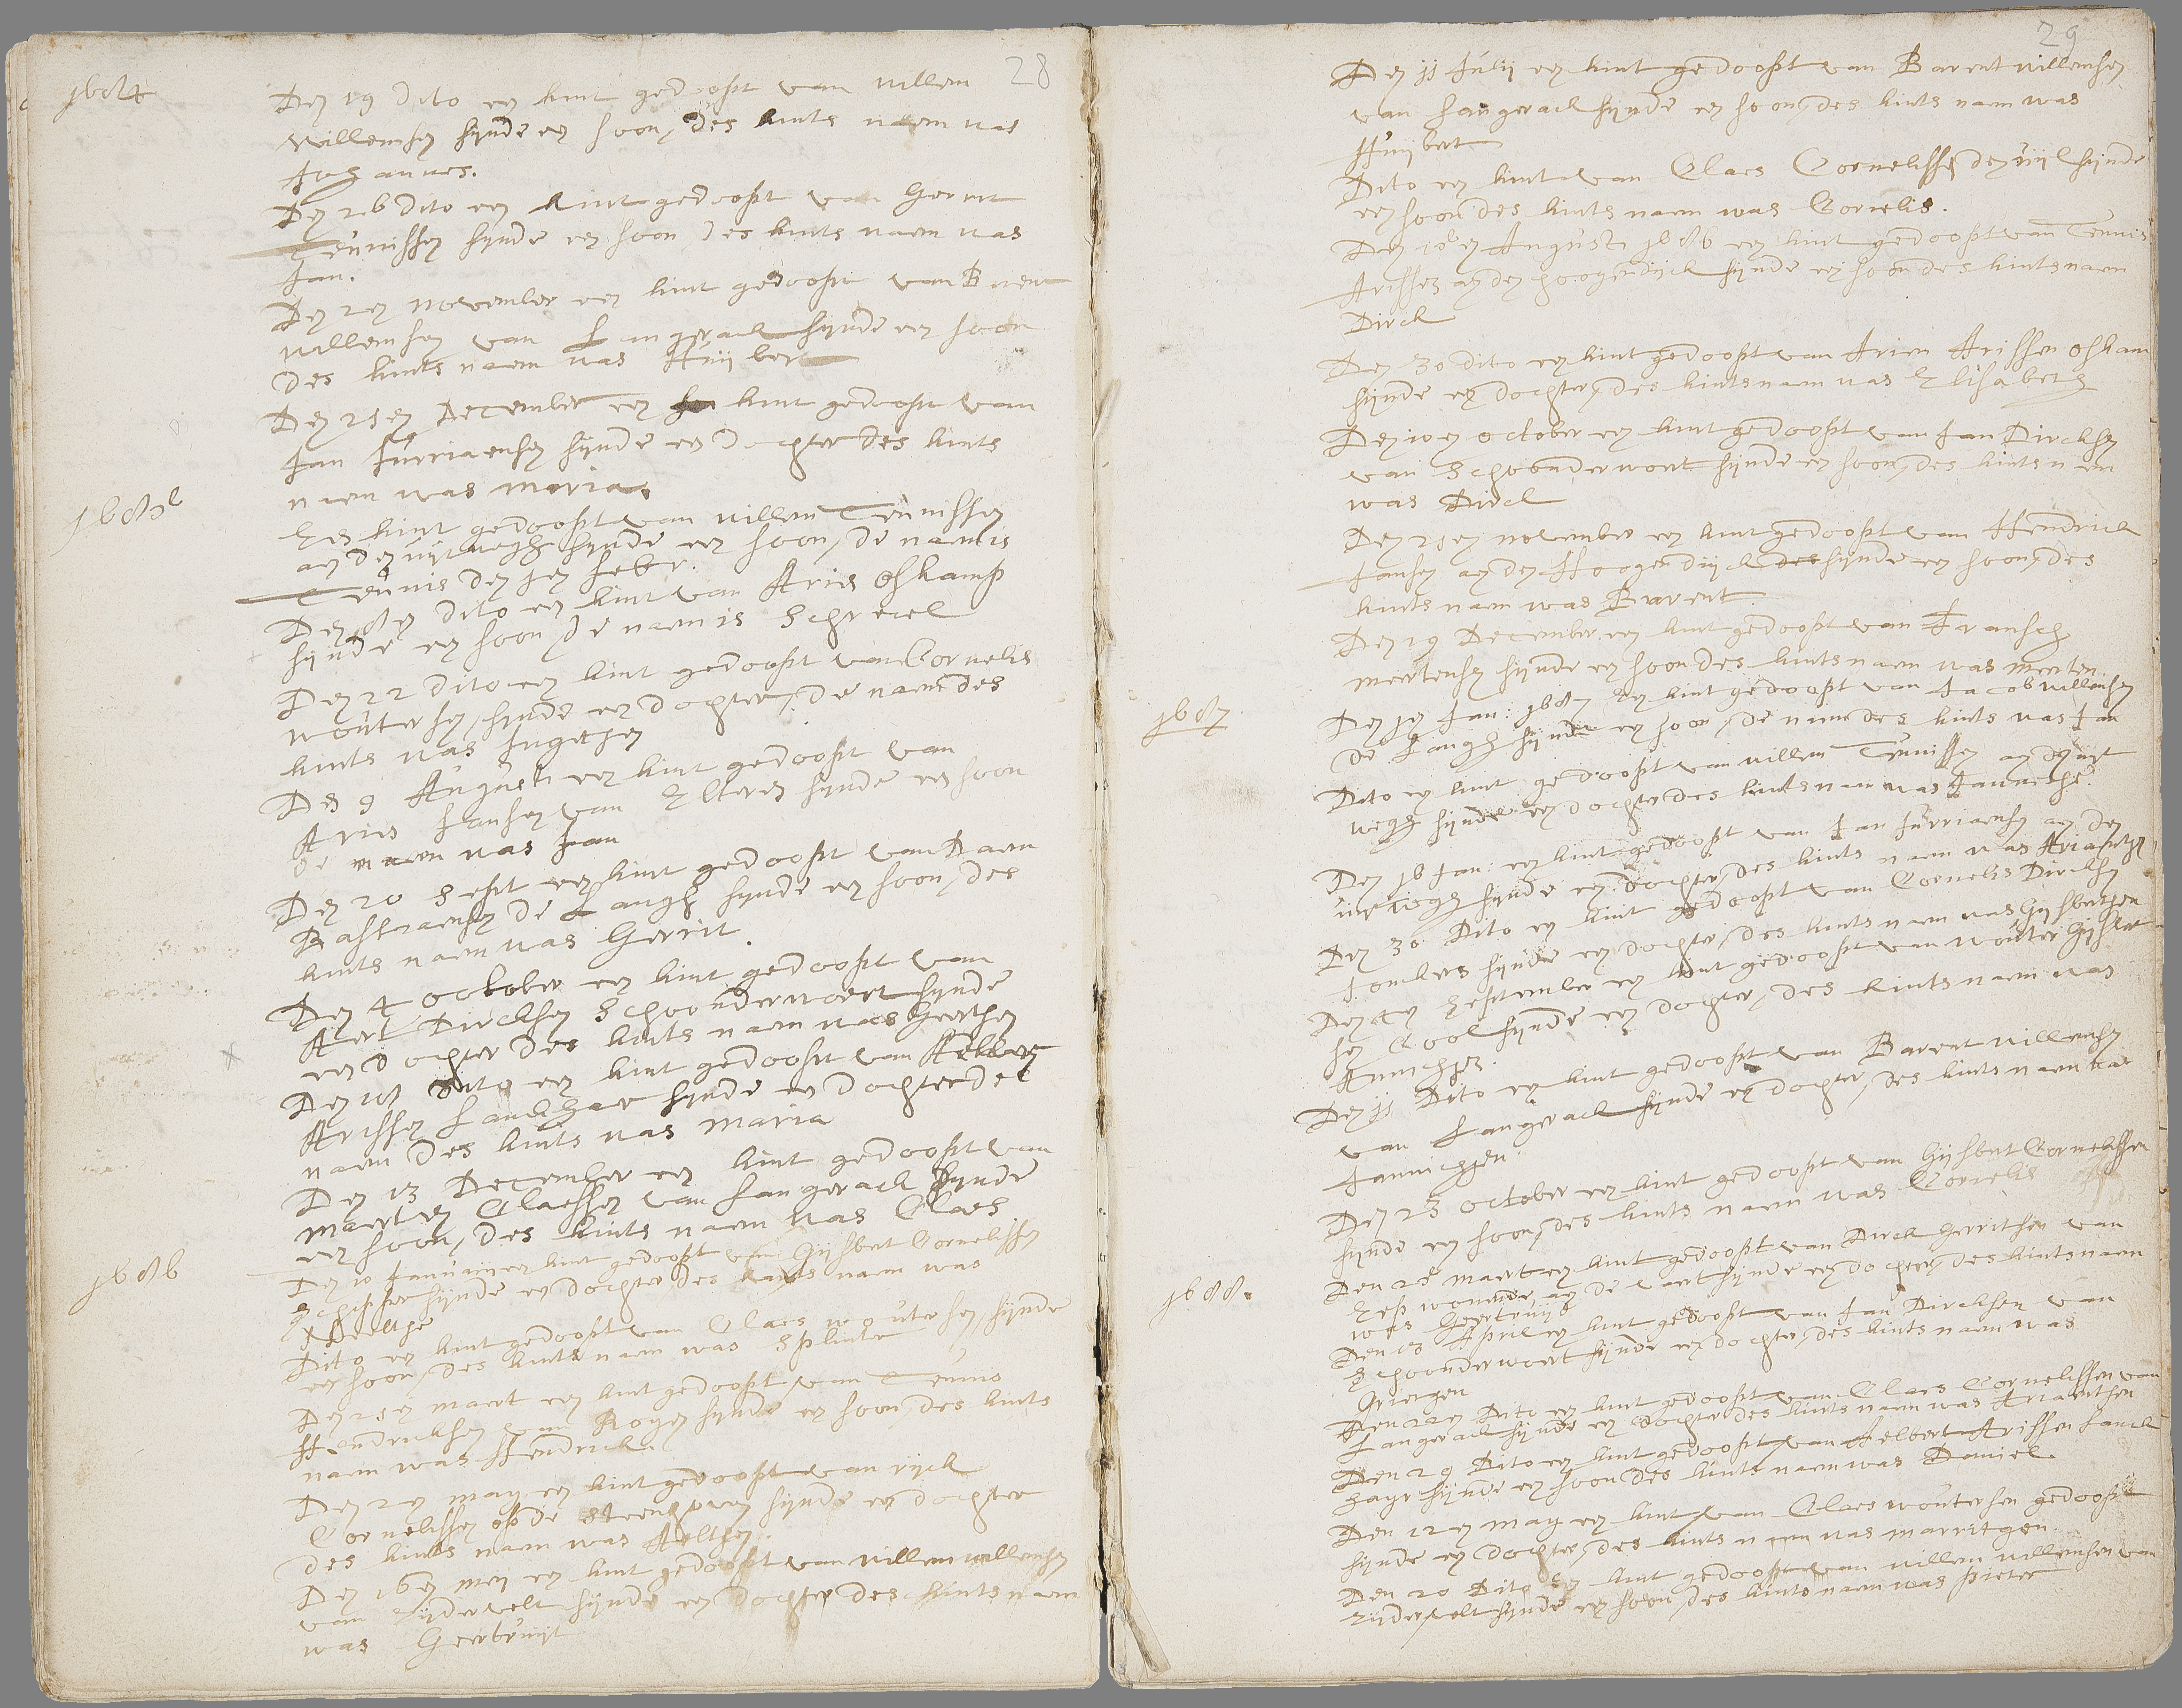 28
1684
Den 19 dito een kint gedoopt van Willem
Willemsen sijnde een soon, des kints naem was
Johannes.
Den 26 dito een kint gedoopt van Gerrit
Teunissen sijnde een soon, des kints naem was
Jan.
Den 2en November een kint gedoopt van Barent
Willemsen van Langerack sijnde een soon
des kints naem was Huijbert
Den 25en December een kint gedoopt van
Jan Jurriaensen sijnde een dochter des kints
naem was Maria.
1685
Een kint gedoopt van Willem Teunissen
aen den uijtwegh sijnde een soon, de naem is
Teunis den 1en Febr.
Den 8en dito een kint van Aris Oskamp
sijnde een soon, de naem is Schrevel
Den 22 dito een kint gedoopt van Cornelis
Woutersen, sijnde een dochter, de naem des
kints was Ingetjen
Den 9 Augusti een kint gedoopt van
Aris Jansen van Elteren sijnde een soon
de naem was Jan
Den 20 Sept een kint gedoopt van Daem
Bastiaensen de Langh sijnde een soon, des
kints naem was Gerrit.
Den 4 October een kint gedoopt van
Aert Dircksen Schoonderwoert sijnde
een dochter des kints naem was Geerthen
Den 18 dito een kint gedoopt van Aelbert
Arissen Lanckhaer sijnde een dochter de
naem des kints was Maria
Den 13 December een kint gedoopt van
Maerten Claessen van Langerack sijnde
een soon, des kints naem was Claes
1686
Den 10 Januarij een kint gedoopt van Gijsbert Cornelissen
Schipper sijnde een dochter des kints naem was
Neeltje
Dito een kint gedoopt van Claes Woutersen sijnde
een soon, des kints naem was Splinter
Den 25en Maert een kint gedoopt van Teunis
Hendricksen van Rogen sijnde een soon, des kints
naem was Hendrick.
Den 2en May een kint gedoopt van Rijck
Cornelissen op de Steenhoven sijnde een dochter
des kints naem was Aelthen.
Den 16en Meij een kint gedoopt van Willem Willemsen
van Zijdervelt sijnde een dochter des kints naem
was Geertruijt
29
Den 11 Julij een kint gedoopt van Barent Willemsen
van Langerack sijnde een soon, des kints naem was
Huijbert
Dito een kint van Claes Cornelissen den uijl sijnde
een soon des kints naem was Cornelis.
Den 18en Augusti 1686 een kint gedoopt van Teunis
Arissen aen den hoogendijck sijnde een soon des kints naem
Dirck
Den 30 dito een kint gedoopt van Arien Arissen Oskam
sijnde een dochter, des kints naem was Elisabeth
Den 10en October een kint gedoopt van Jan Dircksen
van Schoonderwoert sijnde een soon, des kints naem
was Dirck
Den 25en November een kint gedoopt van Hendrick
Jansen aen den Hoogendijck sijnde een soon, des
kints naem was Barent.
Den 19 December een kint gedoopt van Fransch
Meertensen sijnde een soon des kints naem was Meerten.
1687
Den 1en Jan: 1687 Een kint gedoopt van Jacob Willemsen
de Langh sijnde een soon, de naem des kints was Jan
Dito een kint gedoopt van Willem Teunissen aen den uijt
wegh sijnde een dochter des kints naem was Jannethe.
Den 16 Jan: een kint gedoopt van Jan Jurriaensen aen den
uijtwegh sijnde een dochter, des kints naem was Ariaentjen
Den 30 Dito een kint gedoopt van Cornelis Dircksen
Jonckers sijnde een dochter, des kints naem was Gijsbertjen
Den 4en September een kint gedoopt van Wouter Gijsbert
sen Cool sijnde een dochter, des kints naem was
Annichjen.
Den 11 Dito een kint gedoopt van Barent Willemsen
van Langerack sijnde een dochter, des kints naem was
Jannichjen.
Den 23 October een kint gedoopt van Gijsbert Cornelissen
sijnde een soon, des kints naem was Cornelis
1688.
Den 28 Maert een kint gedoopt van Dirck Gerritsen van
Esp wonende aen de vaert sijnde een dochter, des kints naem
was Geertruijd
Den 18 April een kint gedoopt van Jan Dircksen van
Schoonderwoert sijnde een dochter, des kints naem was
Griergen
Den 22en Dito een kint gedoopt van Claes Cornelissen van
Langerack sijnde een dochter des kints naem was Ariaenthen
Den 29 Dito een kint gedoopt van Aelbert Arissen Lanck
hayr sijnde een soon des kints naem was Daniel.
Den 12en May een kint van Claes Woutersen gedoopt
sijnde een dochter, des kints naem was Marritgen.
Den 20 Dito een kint gedoopt van Willem Willemsen van
Zijdervelt sijnde een soon, des kints naem was Pieter